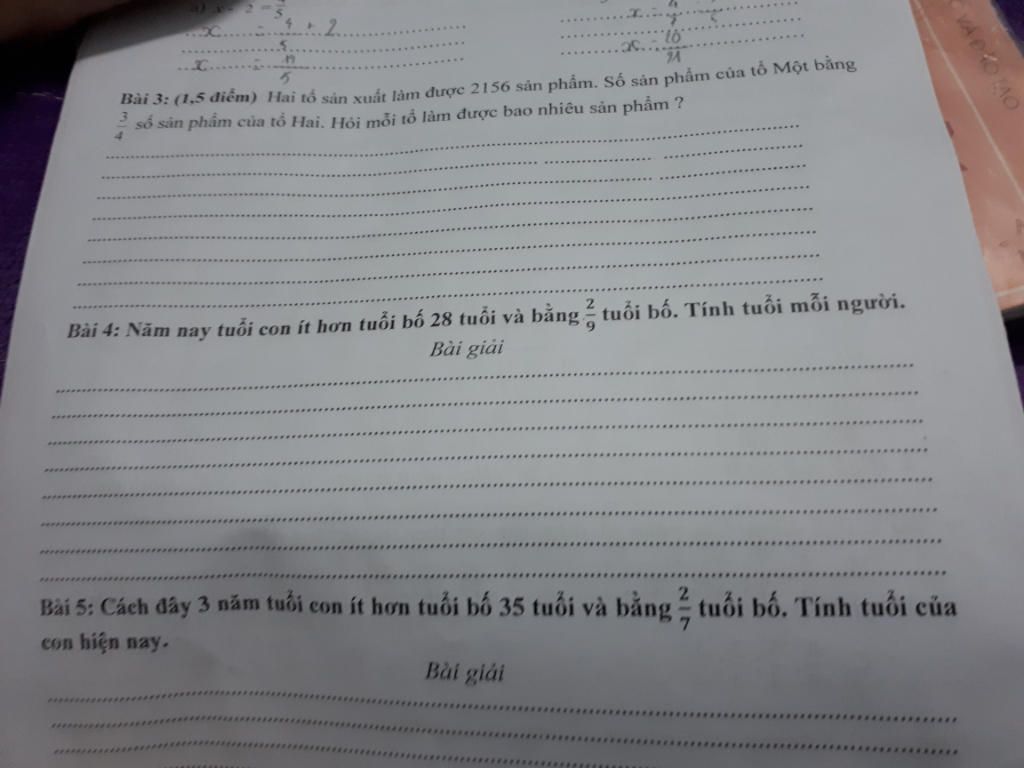 a) x - 2 = 4/5
x = 4/5 + 2
x = 10/21
Bài 3: (1,5 điểm) Hai tổ sản xuất làm được 2156 sản phẩm. Số sản phẩm của tổ Một bằng
3/4 số sản phẩm của tổ Hai. Hỏi mỗi tổ làm được bao nhiêu sản phẩm ?
Bài 4: Năm nay tuổi con ít hơn tuổi bố 28 tuổi và bằng 2/9 tuổi bố. Tính tuổi mỗi người.
Bài giải
Bài 5: Cách đây 3 năm tuổi con ít hơn tuổi bố 35 tuổi và bằng 2/7 tuổi bố. Tính tuổi của
con hiện nay.
Bài giải
VÀ ĐÀO TẠO